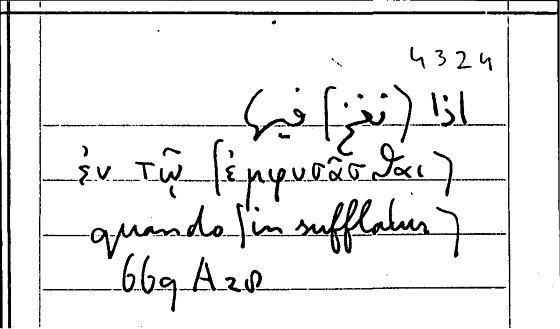 4324
اذا (نفخ) فيها
ἐν τῷ (ἐμφυσᾶσθαι)
quando (insufflatur)
669 A 28